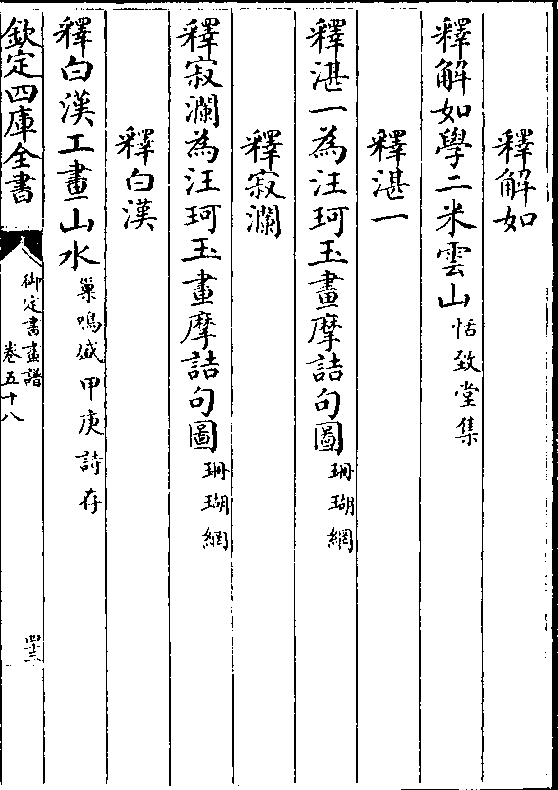 釋解如
釋解如學二米雲山恬致堂集
釋湛一
釋湛一為汪珂玉畫摩詰句圖珊瑚網
釋寂瀾
釋寂瀾為汪珂玉畫摩詰句圖珊瑚網
釋白漢
釋白漢工畫山水巢鳴盛甲庚詩存
欽定四庫全書
御定書畫譜
卷五十八
四十三